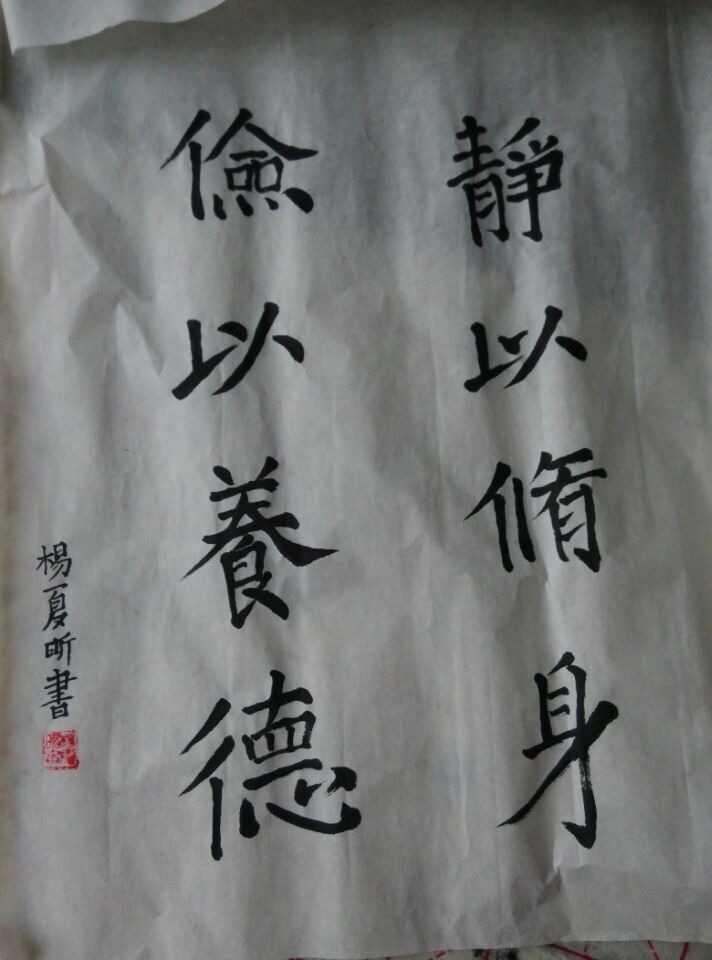 靜以脩身
儉以養德
楊夏昕書